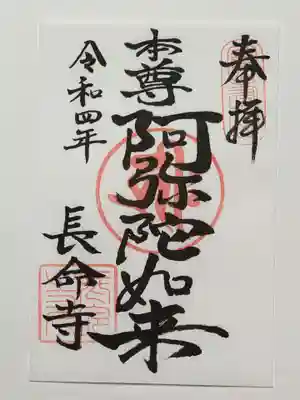 奉拝
本尊 阿弥陀如来
令和四年
長命寺